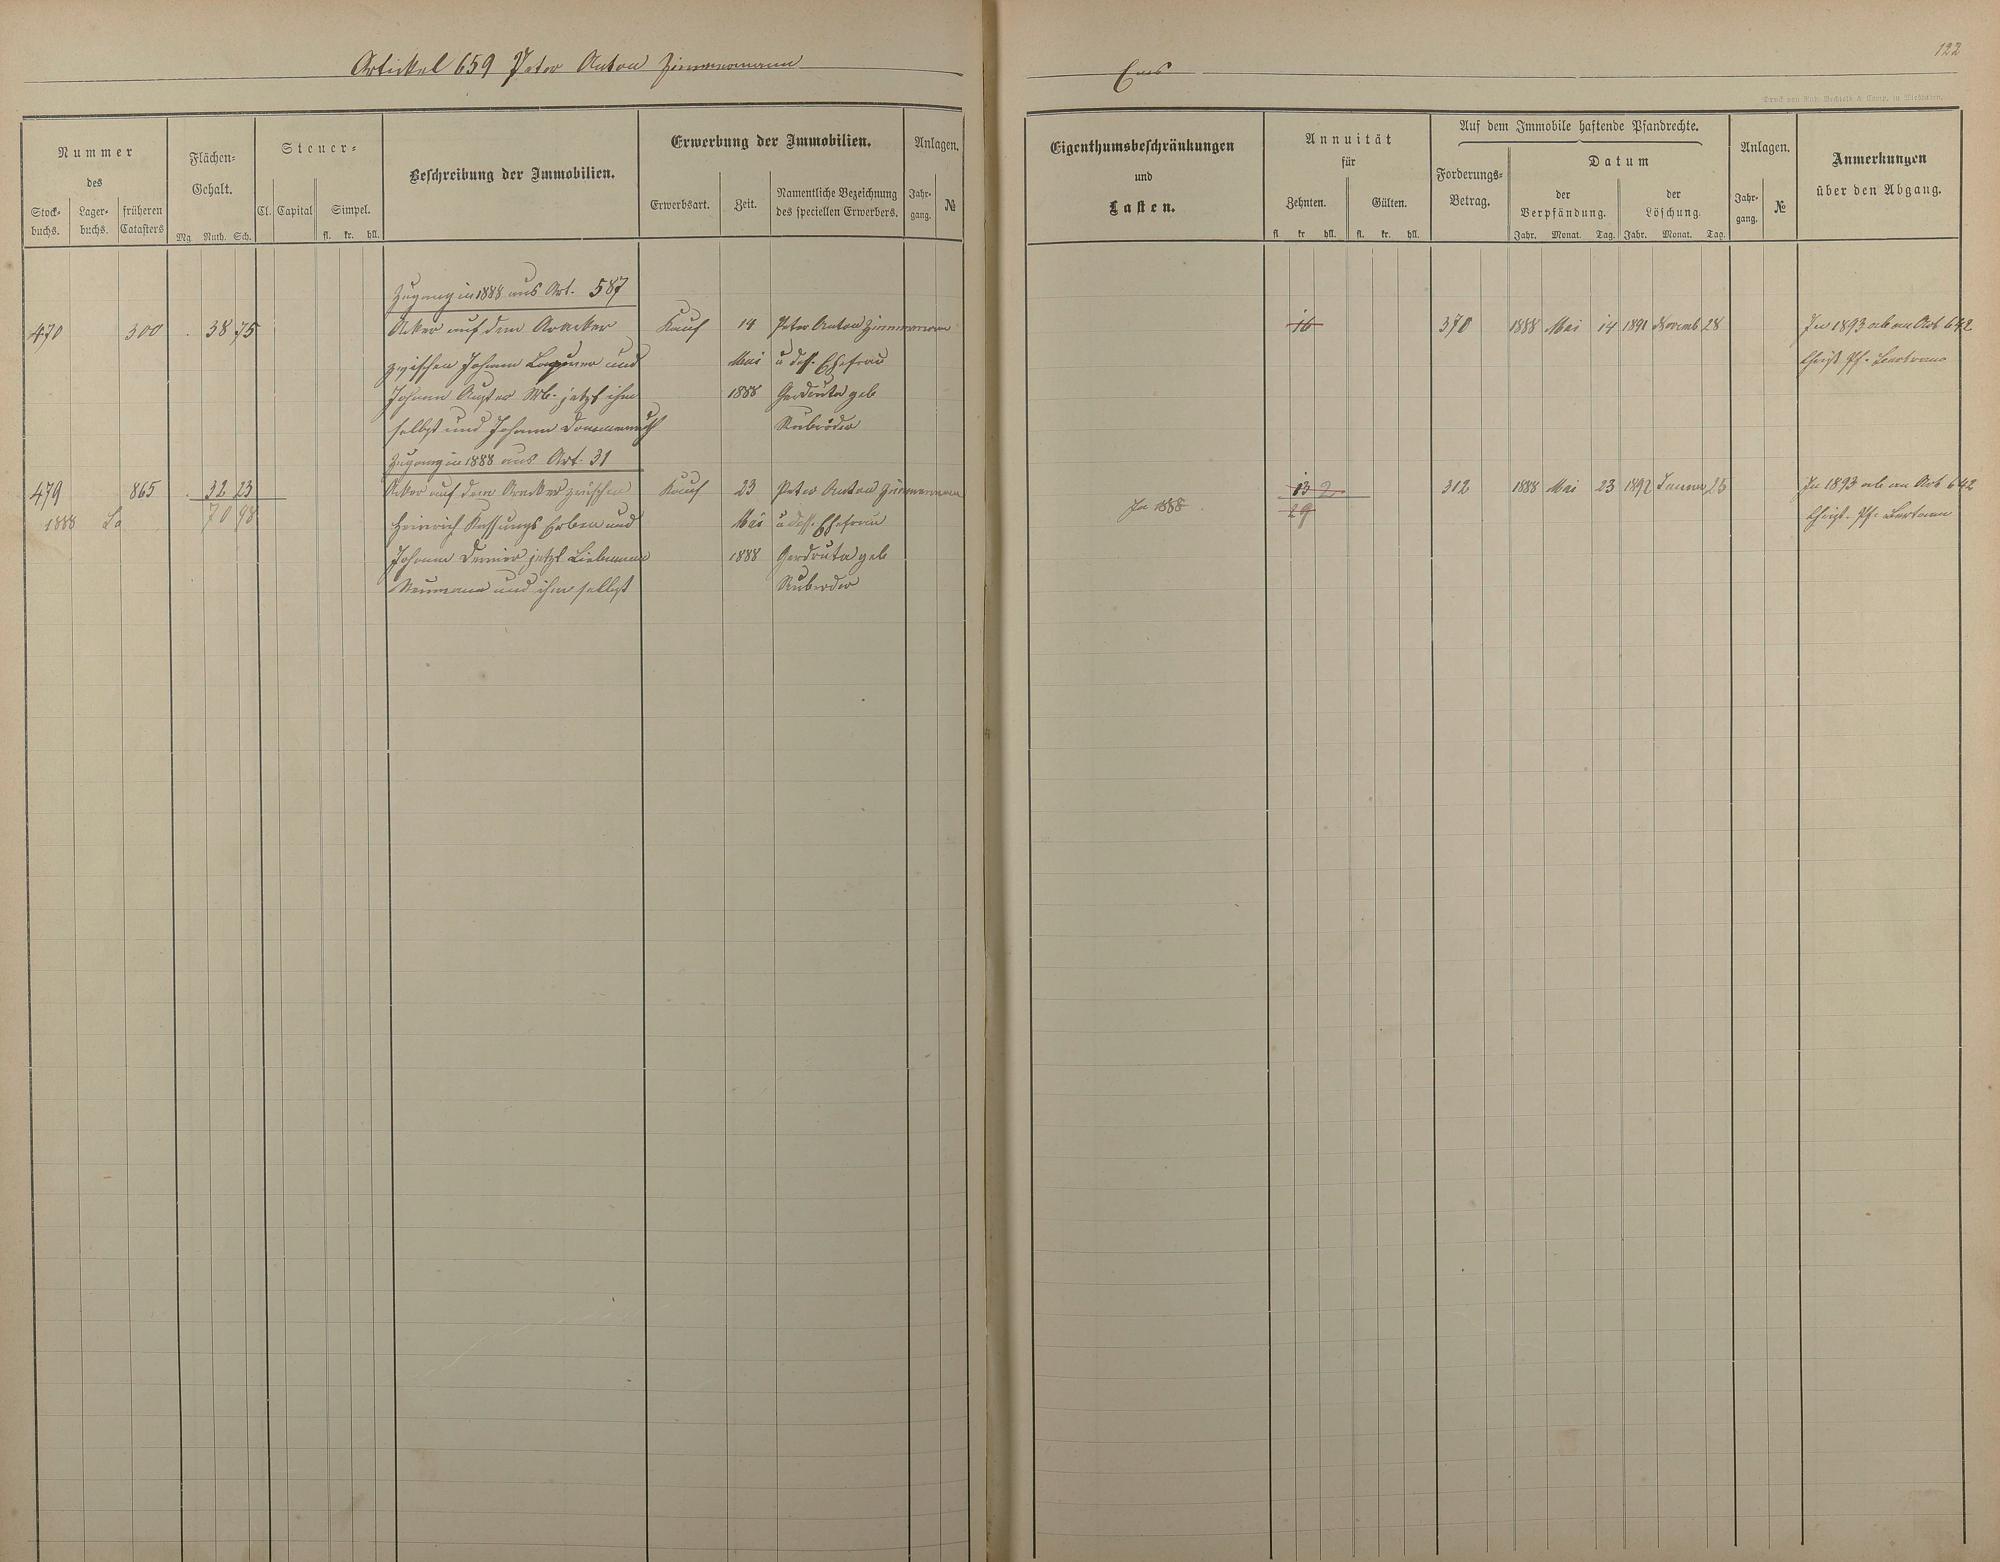 Artickel 659 Peter Anton Zimmermann
Nummer
des
Stock-
buchs.
Lager-
buchs.
früheren
Catasters
Flächen-
Gehalt.
Mg Ruth. Sch.
Steuer-
Cl. Capital Simpel.
fl. kr. hll.
Beschreibung der Immobilien.
Erwerbung der Immobilien.
Erwerbsart. Zeit.
Namentliche Bezeichnung
des speciellen Erwerbers.
Anlagen.
Jahr-
gang.
№
Zugang in 1888 aus Art. 587
470 300 . 38 75 Acker auf dem Aracker Kauf 14 Peter Anton Zimmermann
zwischen Johann und Mai u dess. Ehefrau
Johann August Wb. jetzt ihm 1888 Gerdruta geb
selbst und Johann
Zugang in 1888 aus Art. 31
479 865 . 32 23 Acker auf dem Aracker zwischen Kauf 23 Peter Anton Zimmermann
1888 La 70 98 Heinrich Erben und Mai u dess. Ehefrau
Johann jetzt 1888 Gerdruta geb
Neumann und ihm selbst
Ems
122
Eigenthumsbeschränkungen
und
Lasten.
Annuität
für
Zehnten. Gülten.
fl. kr hll. fl. kr. hll.
Auf dem Immobile haftende Pfandrechte.
Forderungs-
Betrag.
Datum
der
Verpfändung.
der
Löschung.
Jahr. Monat. Tag. Jahr. Monat. Tag.
Anlagen.
Jahr-
gang.
№
Anmerkungen
über den Abgang.
16 370 1888 Mai 14 1891 Novemb 28 In 1893 ab an Art 642
Christ. Pf.
13 2 312 1888 Mai 23 1892 Januar 25 In 1893 ab an Art 642
In 1888 29 Christ. Pf.